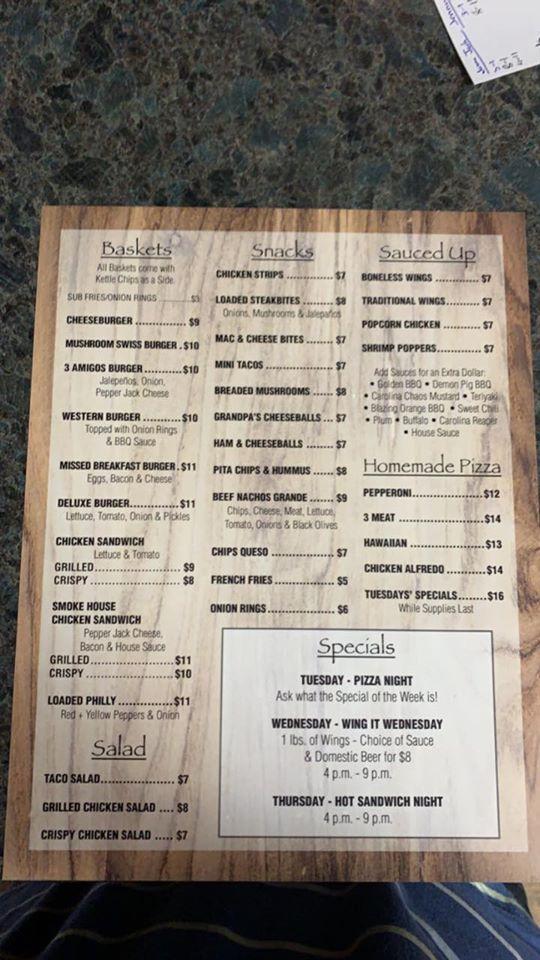 Baskets
All Baskets come with
Kettle Chips as a Side.
SUB FRIES/ONION RINGS ........... $3
CHEESEBURGER ............... $9
MUSHROOM SWISS BURGER . $10
3 AMIGOS BURGER ........... $10
Jalepeños, Onion,
Pepper Jack Cheese
WESTERN BURGER ........... $10
Topped with Onion Rings
& BBQ Sauce
MISSED BREAKFAST BURGER . $11
Eggs, Bacon & Cheese
DELUXE BURGER............... $11
Lettuce, Tomato, Onion & Pickles
CHICKEN SANDWICH
Lettuce & Tomato
GRILLED......................... $9
CRISPY .......................... $8
SMOKE HOUSE
CHICKEN SANDWICH
Pepper Jack Cheese,
Bacon & House Sauce
GRILLED......................... $11
CRISPY .......................... $10
LOADED PHILLY ................ $11
Red + Yellow Peppers & Onion
Salad
TACO SALAD..................... $7
GRILLED CHICKEN SALAD .... $8
CRISPY CHICKEN SALAD ..... $7
Snacks
CHICKEN STRIPS .............. $7
LOADED STEAKBITES ......... $8
Onions, Mushrooms & Jalepaños
MAC & CHEESE BITES ........ $7
MINI TACOS .................... $7
BREADED MUSHROOMS ...... $8
GRANDPA'S CHEESEBALLS ... $7
HAM & CHEESEBALLS ........ $7
PITA CHIPS & HUMMUS ...... $8
BEEF NACHOS GRANDE ....... $9
Chips, Cheese, Meat, Lettuce,
Tomato, Onions & Black Olives
CHIPS QUESO ................... $7
FRENCH FRIES .................. $5
ONION RINGS.................... $6
Sauced Up
BONELESS WINGS ............. $7
TRADITIONAL WINGS.......... $7
POPCORN CHICKEN ........... $7
SHRIMP POPPERS.............. $7
Add Sauces for an Extra Dollar:
• Golden BBQ • Demon Pig BBQ
• Carolina Chaos Mustard • Teriyaki
• Blazing Orange BBQ • Sweet Chili
• Plum • Buffalo • Carolina Reaper
• House Sauce
Homemade Pizza
PEPPERONI..................... $12
3 MEAT .......................... $14
HAWAIIAN ....................... $13
CHICKEN ALFREDO .......... $14
TUESDAYS' SPECIALS........ $16
While Supplies Last
Specials
TUESDAY - PIZZA NIGHT
Ask what the Special of the Week is!
WEDNESDAY - WING IT WEDNESDAY
1 lbs. of Wings - Choice of Sauce
& Domestic Beer for $8
4 p.m. - 9 p.m.
THURSDAY - HOT SANDWICH NIGHT
4 p.m. - 9 p.m.